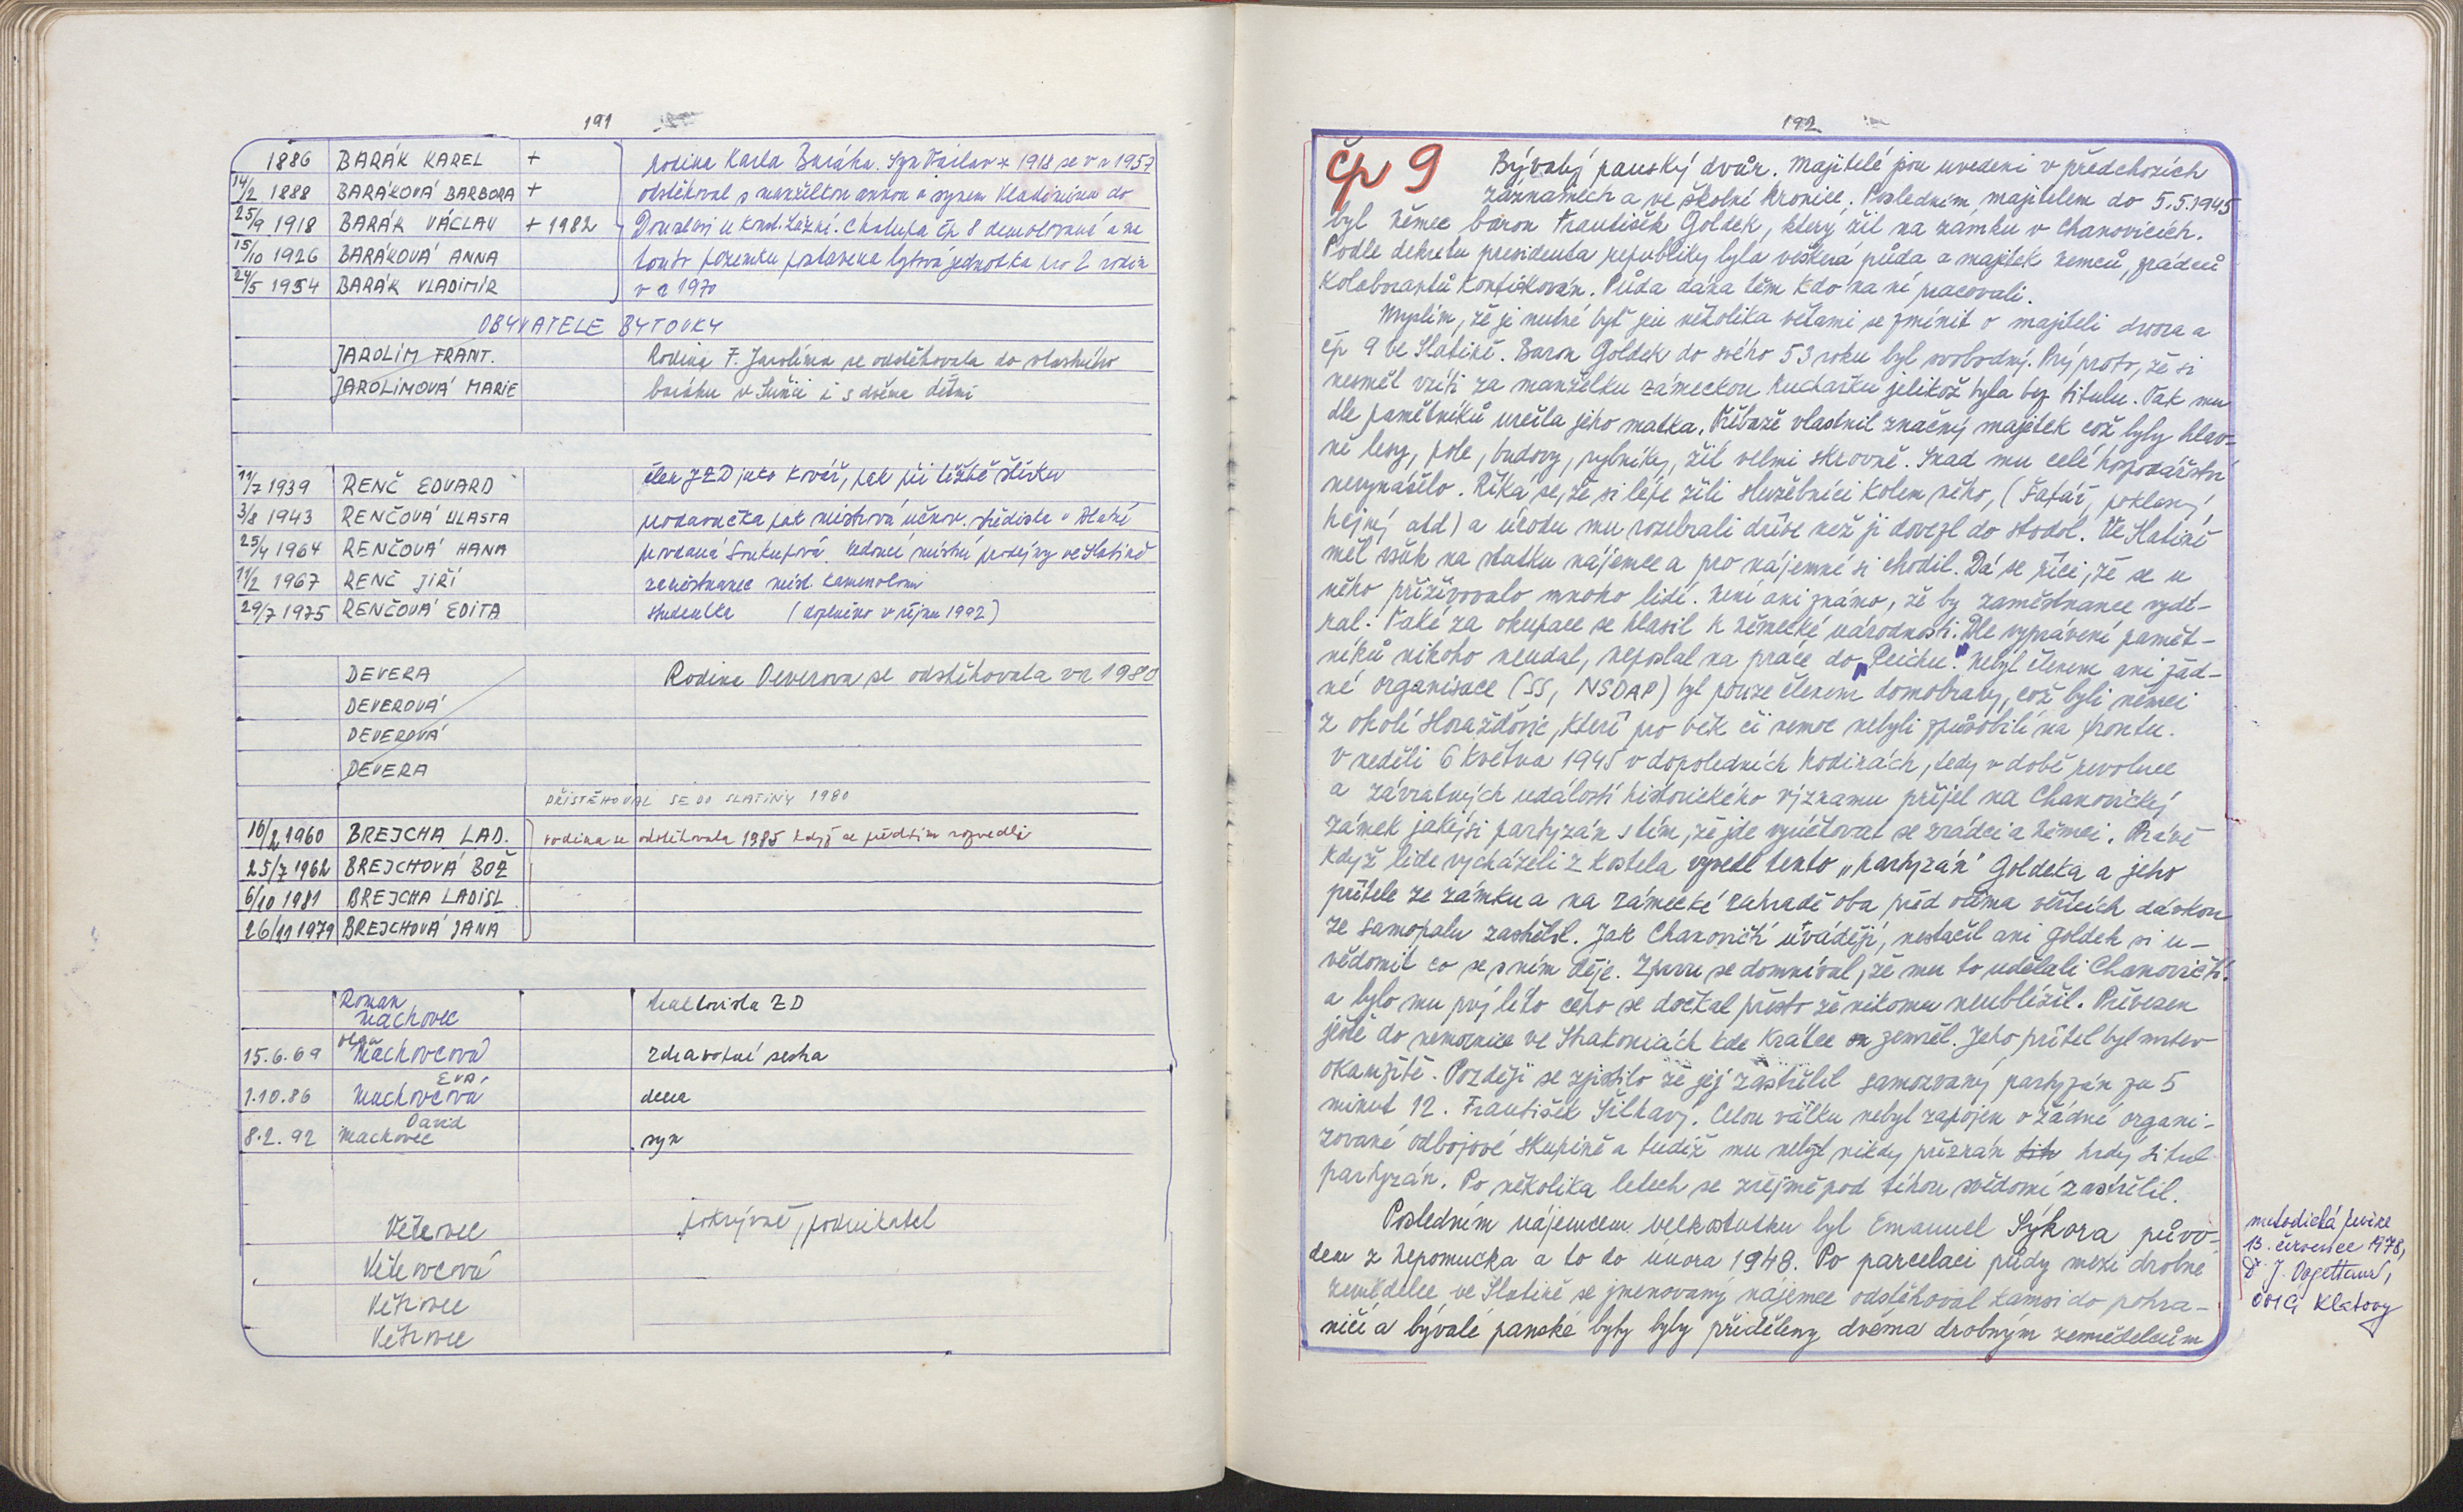 191
1886 BARÁK KAREL + rodina Karla Baráka. Syn Václav * 1918 se v r 1957
14/2 1888 BARÁKOVÁ BARBORA + odstěhoval s manželkou annou a synem Vladimírem do
25/9 1918 BARÁK VÁCLAV + 1982 u Konst. Lázní. Chalupa čp 8 demolovaná a na
15/10 1926 BARÁKOVÁ ANNA tomto pozemku postavena bytová jednotka pro 2 rodin
24/5 1954 BARÁK VLADIMÍR v r 1970
OBYVATELE BYTOVKY
JAROLÍM FRANT. Rodina F. Jarolíma se odstěhovala do vlastního
JAROLÍMOVÁ MARIE baráku v Sušici i s dvěma dětmi
11/7 1939 RENČ EDUARD člen JZD jako kovář, pak při těžbě štěrku
3/8 1943 RENČOVÁ VLASTA prodavačka pak mistrová učňov. střediska v Blatné
25/4 1964 RENČOVÁ HANA provdaná Soukupová vedoucí místní prodejny ve Slatině
11/2 1967 RENČ JIŘÍ zaměstnanec míst. kamenolomu
29/7 1975 RENČOVÁ EDITA studentka (doplněno v říjnu 1992)
DEVERA Rodina Deverova se odstěhovala v r 1980
DEVEROVÁ
DEVEROVÁ
DEVERA
PŘISTĚHOVAL SE DO SLATINY 1980
16/2 1960 BREJCHA LAD. rodina se odstěhovala 1985 když se předtím rozvedli
25/7 1962 BREJCHOVÁ BOŽ
6/10 1981 BREJCHA LADISL
26/11 1979 BREJCHOVÁ JANA
Roman
Machovec traktorista ZD
Olga
15.6.69 Machovcová zdravotní sestra
Eva
1.10.86 Machovcová dcera
David
8.2.92 Machovec syn
Větrovec pokrývač, podnikatel
Větrovcová
Větrovec
Větrovec
192
čp 9 Bývalý panský dvůr. Majitelé jsou uvedeni v předchozích
záznamech a ve školní kronice. Posledním majitelem do 5.5.1945
byl němec baron František Goldek, který žil na zámku v Chanovicích.
Podle dekretu presidenta republiky byla veškerá půda a majetek němců, zrádců
kolaborantů konfiskován. Půda dána těm kdo na ní pracovali.
Myslím, že je nutné byť jen několika větami se zmínit o majiteli dvora a
čp 9 ve Slatině. Baron Goldek do svého 53 roku byl svobodný. Prý proto, že si
nesměl vzíti za manželku zámeckou kuchařku jelikož byla bez titulu. Tak mu
dle pamětníků určila jeho matka. Přibože vlastnil značný majetek což byly hlav-
ně lesy, pole, budovy, rybníky, žil velmi skrovně. Snad mu celé hospodářství
nevynášelo. Říká se, že si lépe žili služebníci kolem něho, (Šafář, poklasný,
hajný atd) a úrodu mu rozebrali dříve než ji dovezl do stodol. Ve Slatině
měl však na statku nájemce a pro nájemné si chodil. Dá se říci, že se u
něho přiživovalo mnoho lidí. Není ani známo, že by zaměstnance vydí-
ral. Také za okupace se hlásil k německé národnosti. Dle vyprávění pamět-
níků nikoho neudal, neposlal na práce do „Reichu". Nebyl členem ani žád-
né organisace (SS, NSDAP) byl pouze členem domobrany, což byli němci
z okolí Horažďovic, kteří pro věk či nemoc nebyli způsobilí na frontu.
V neděli 6 května 1945 v dopoledních hodinách, tedy v době revoluce
a závratných událostí historického významu přijel na Chanovický
zámek jakýsi partyzán s tím, že jde vyúčtovat se zrádci a němci. Právě
když lidé vycházeli z kostela vyvedl tento „partyzán" Goldeka a jeho
přítele ze zámku a na zámecké zahradě oba před očima věřících dávkou
ze samopalu zastřelil. Jak Chanovičtí uvádějí, nestačil ani Goldek si u-
vědomit co se s ním děje. Zprvu se domníval, že mu to udělali Chanovičtí.
a bylo mu prý líto čeho se dočkal přesto že nikomu neublížil. Převezen
ještě do nemocnice ve Strakonicích kde krátce on zemřel. Jeho přítel byl mrtev
okamžitě. Později se zjistilo že jej zastřelil samozvaný partyzán za 5
minut 12. František Šilhavý. Celou válku nebyl zapojen v žádné organi-
zované odbojové skupině a tudíž mu nebyl nikdy přiznán tit hrdý titul
partyzán. Po několika letech se zřejmě pod tíhou svědomí zastřelil.
Posledním nájemcem velkostatku byl Emanuel Sýkora půvo-
dem z Nepomucka a to do února 1948. Po parcelaci půdy mezi drobné
zemědělce ve Slatině se jmenovaný nájemce odstěhoval kamsi do pohra-
ničí a bývalé panské byty byly přiděleny dvěma drobným zemědělcům
metodická revize
13. července 1978,
Dr J.
Klatovy